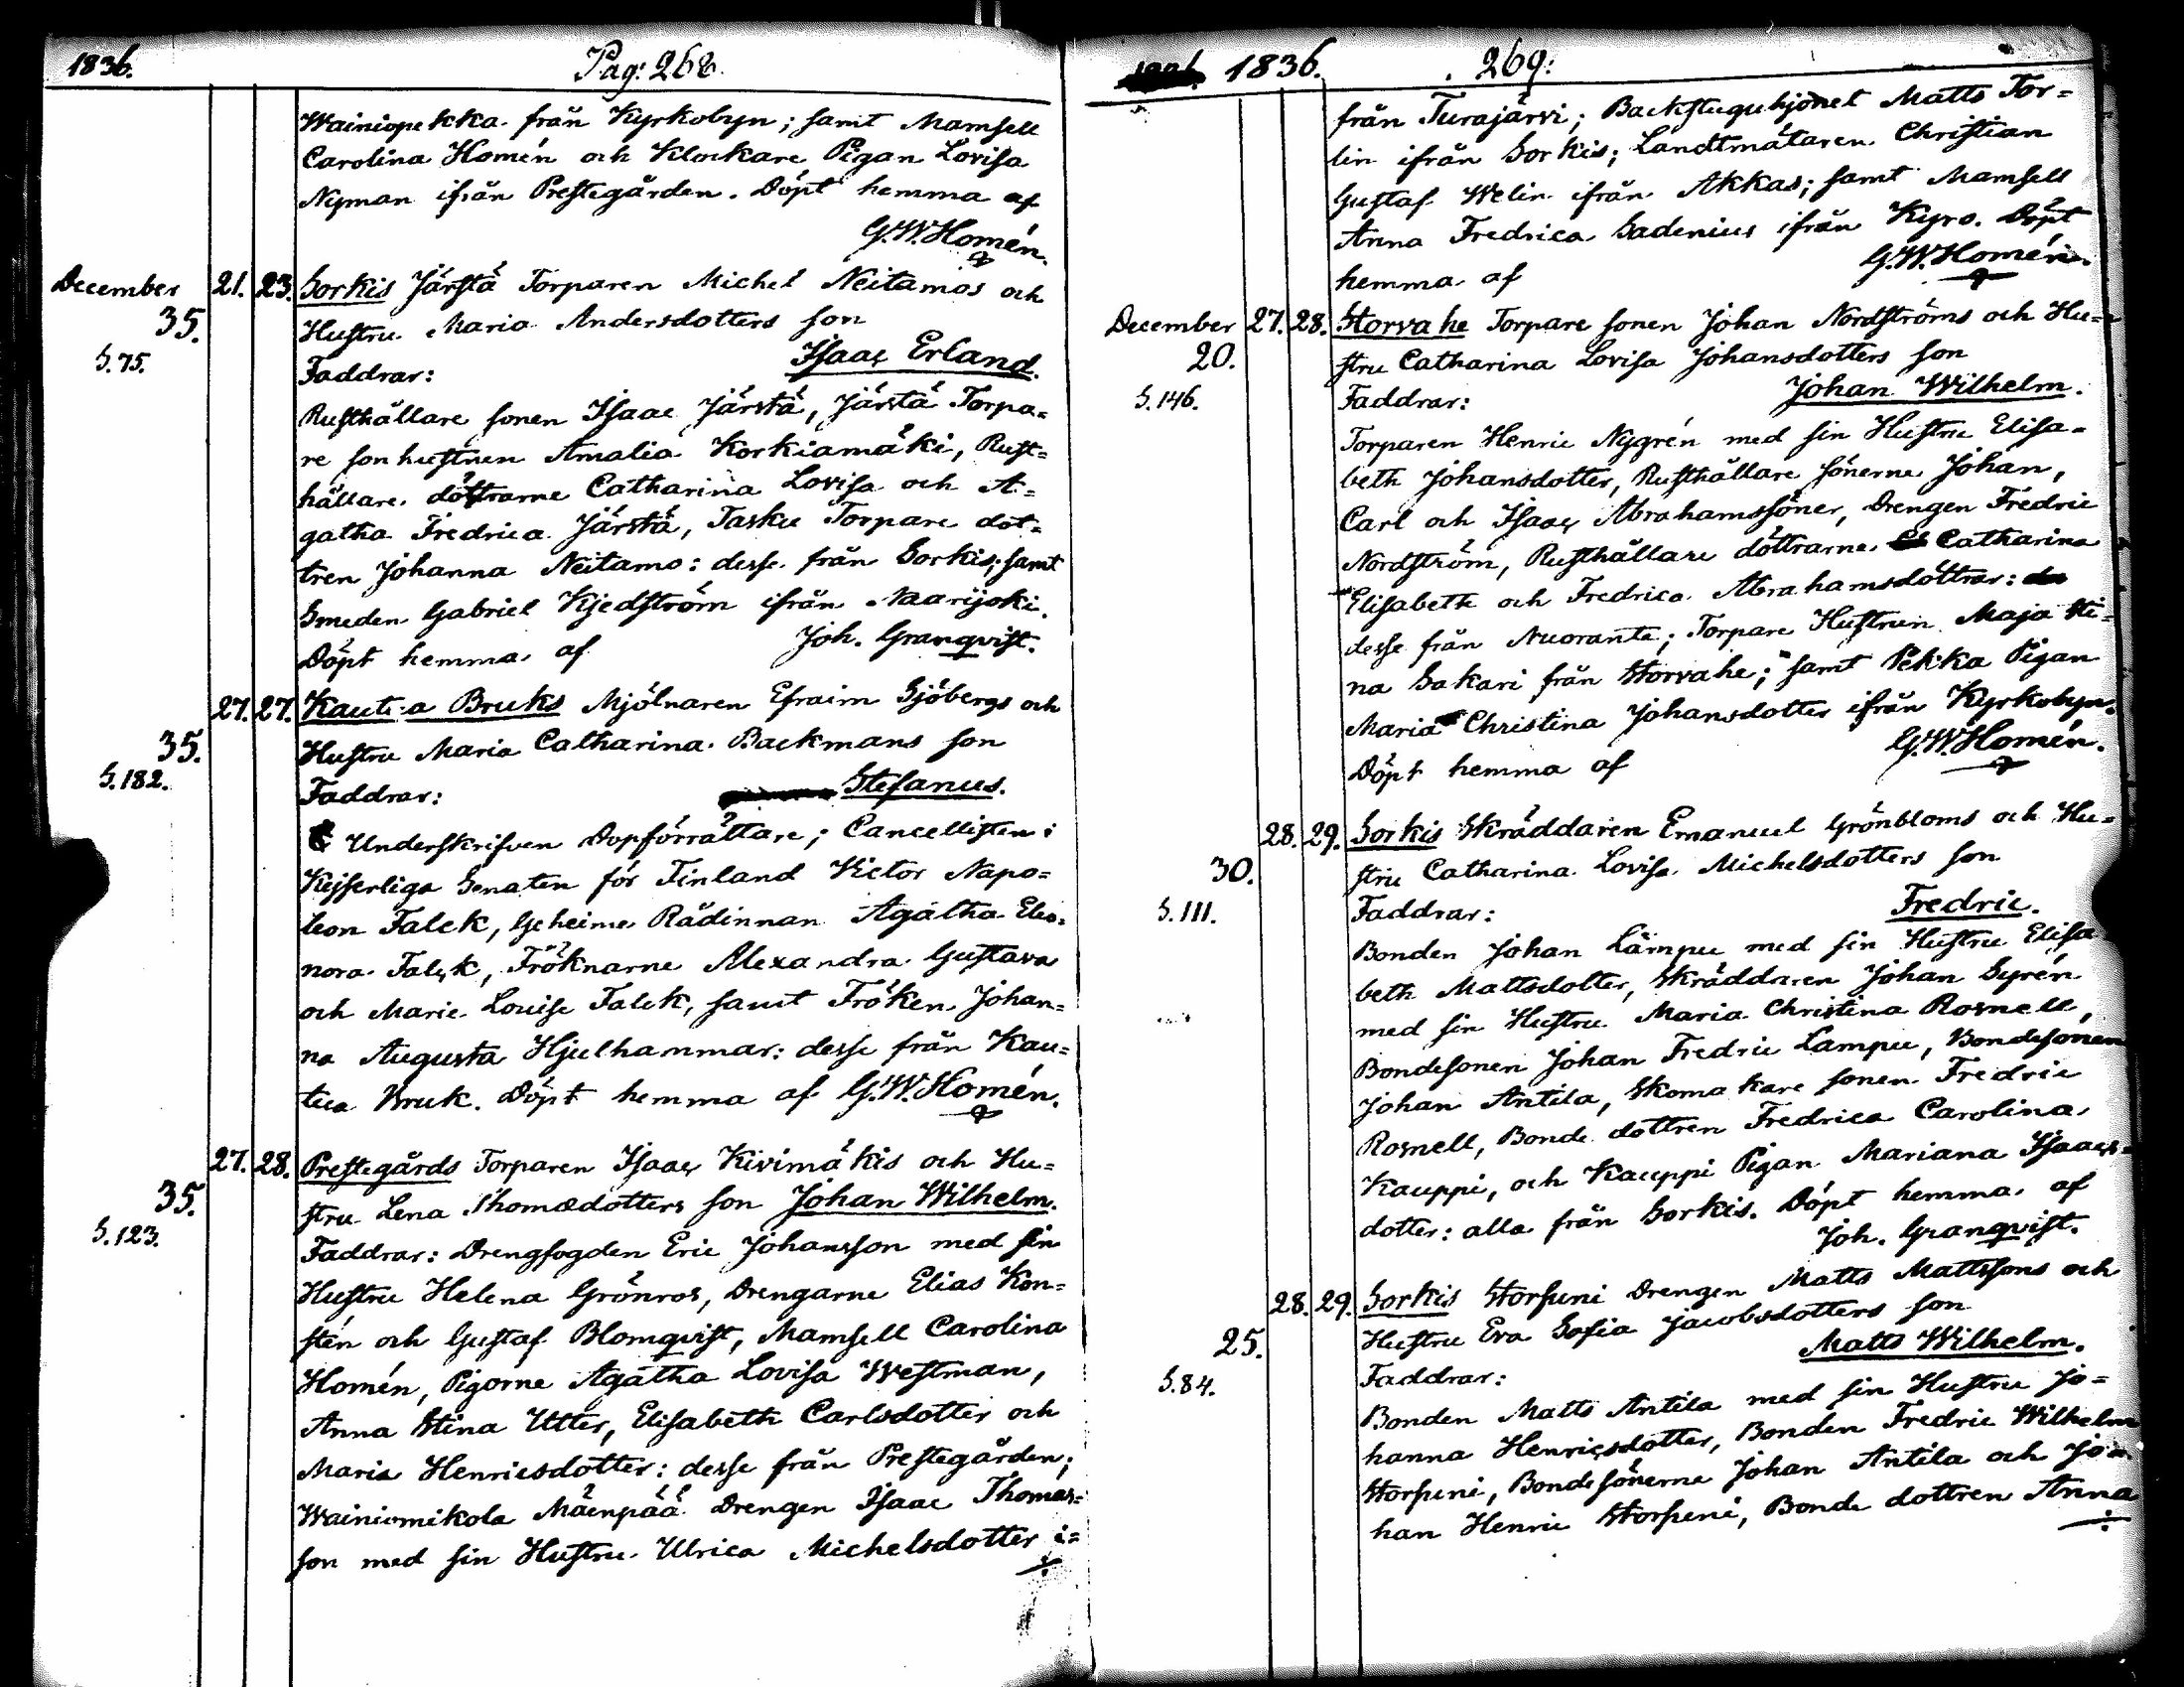 1836.
Pag: 268.
Wainiopekka från Kyrkobyn; samt Mamsell
Carolina Homén och Klockare Pigan Lovisa
Nyman ifrån Prestegården. Döpt hemma af
G.W. Homén.
December 21. 23. Sorkis Järstä Torparen Michel Neitamos och
35. Hustru Maria Andersdotters son
S. 75. Faddrar: Isaac Erland.
Rusthållare sonen Isaac Järstä, Järstä Torpa=
re sonhustrun Amalia Korkiamäki, Rust=
hållare döttrarne Catharina Lovisa och A=
gatha Fredrica Järstä, Tasku Torpare dot=
tren Johanna Neitamo: desse från Sorkis; samt
Smeden Gabriel Kjedström ifrån Naarijoki.
Döpt hemma af Joh. Granqvist.
27. 27. Kautua Bruks Mjölnaren Efraim Sjöbergs och
35. Hustru Maria Catharina Backmans son
S. 182. Faddrar: Stefanus.
Underskrifven Dopförrättare; Cancellisten i
Kejserliga Senaten för Finland Victor Napo=
leon Falck, Geheime Rådinnan Agatha Eleo=
nora Falck, Fröknarne Alexandra Gustava
och Marie Louise Falck, samt Fröken Johan=
na Augusta Hjulhammar: desse från Kau=
tua Bruk. Döpt hemma af G.W. Homén.
27. 28. Prestegårds Torparen Isaac Kivimäkis och Hu=
35. stru Lena Thomædotters son Johan Wilhelm.
S. 123. Faddrar: Drengfogden Eric Johansson med sin
Hustru Helena Grönros, Drengarne Elias Kon=
stén och Gustaf Blomqvist, Mamsell Carolina
Homén, Pigorne Agatha Lovisa Westman,
Anna Stina Utter, Elisabeth Carlsdotter och
Maria Henricsdotter: desse från Prestegården;
Wainiomikola Mäenpää Drengen Isaac Thomas=
son med sin Hustru Ulrica Michelsdotter i=
1836. 269:
från Turajärvi; Backstuguhjonet Matts Tor=
lin ifrån Sorkis; Landtmätaren Christian
Gustaf Welin ifrån Akkas; samt Mamsell
Anna Fredrica Sadenius ifrån Kyro. Döpt
hemma af G.W. Homén.
December 27. 28. Storvahe Torpare sonen Johan Nordströms och Hu=
20. stru Catharina Lovisa Johansdotters son
S. 146. Faddrar: Johan Wilhelm.
Torparen Henric Nygrén med sin Hustru Elisa=
beth Johansdotter, Rusthållare sönerne Johan,
Carl och Isaac Abrahamssöner, Drengen Fredric
Nordström, Rusthållare döttrarne Catharina
Elisabeth och Fredrica Abrahamsdöttrar:
desse från Nuoranta; Torpare Hustrun Maja Sti=
na Sakari från Storvahe; samt Pekka Pigan
Maria Christina Johansdotter ifrån Kyrkobyn.
Döpt hemma af G.W. Homén.
28. 29. Sorkis Skräddaren Emanuel Grönbloms och Hu=
30. stru Catharina Lovisa Michelsdotters son
S. 111. Faddrar: Fredric.
Bonden Johan Lämpu med sin Hustru Elisa
beth Mattsdotter, Skräddaren Johan Syrén
med sin Hustru Maria Christina Rosnell,
Bondesonen Johan Fredric Lampu, Bondesonen
Johan Antila, Skomakare sonen Fredric
Rosnell, Bonde dottren Fredrica Carolina
Kauppi, och Kauppi Pigan Mariana Isaacs=
dotter: alla från Sorkis. Döpt hemma af
Joh. Granqvist.
28. 29. Sorkis Storsuni Drengen Matts Mattssons och
25. Hustru Eva Sofia Jacobsdotters son
S. 84. Faddrar: Matts Wilhelm.
Bonden Matts Antila med sin Hustru Jo=
hanna Henricsdotter, Bonden Fredric Wilhelm
Storsuni, Bondesönerne Johan Antila och Jo=
han Henric Storsuni, Bonde dottren Anna